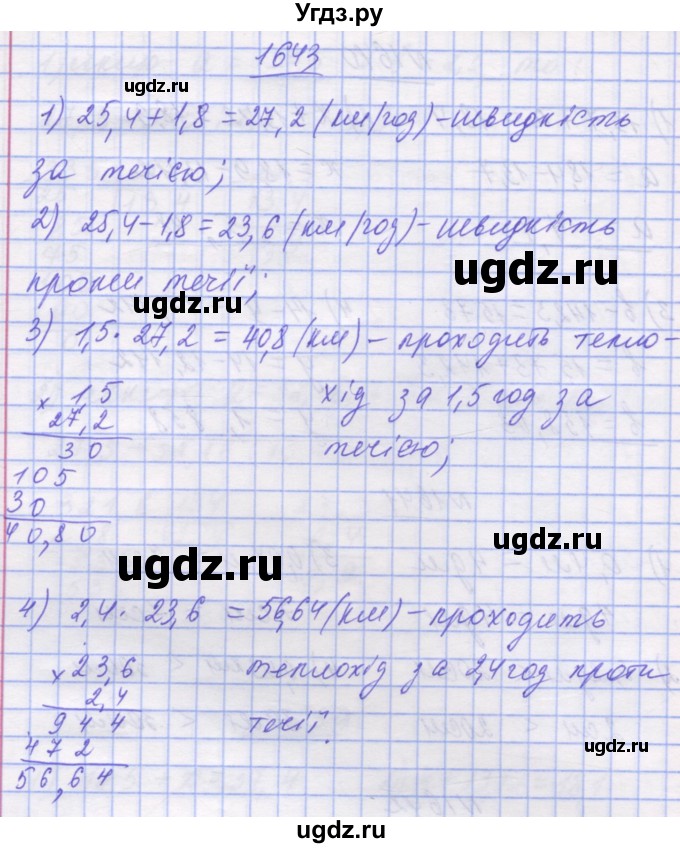 Угдз.ру
1643
1) 25,4+1,8=27,2(км/год)-швидкість
за течією;
2) 25,4-1,8=23,6(км/год)-швидкість
проти течії;
3) 1,5·27,2=40,8(км)-проходить тепло-
хід за 1,5 год за
течією;
× 1,5
27,2
30
105
30
40,80
4) 2,4·23,6=56,64(км)-проходить
теплохід за 2,4 год проти
течії.
× 23,6
2,4
944
472
56,64
ugdz.ru
ugdz.ru
ugdz.ru
ugdz.ru
ugdz.ru
ugdz.ru
ugdz.ru
ugdz.ru
ugdz.ru
ugdz.ru